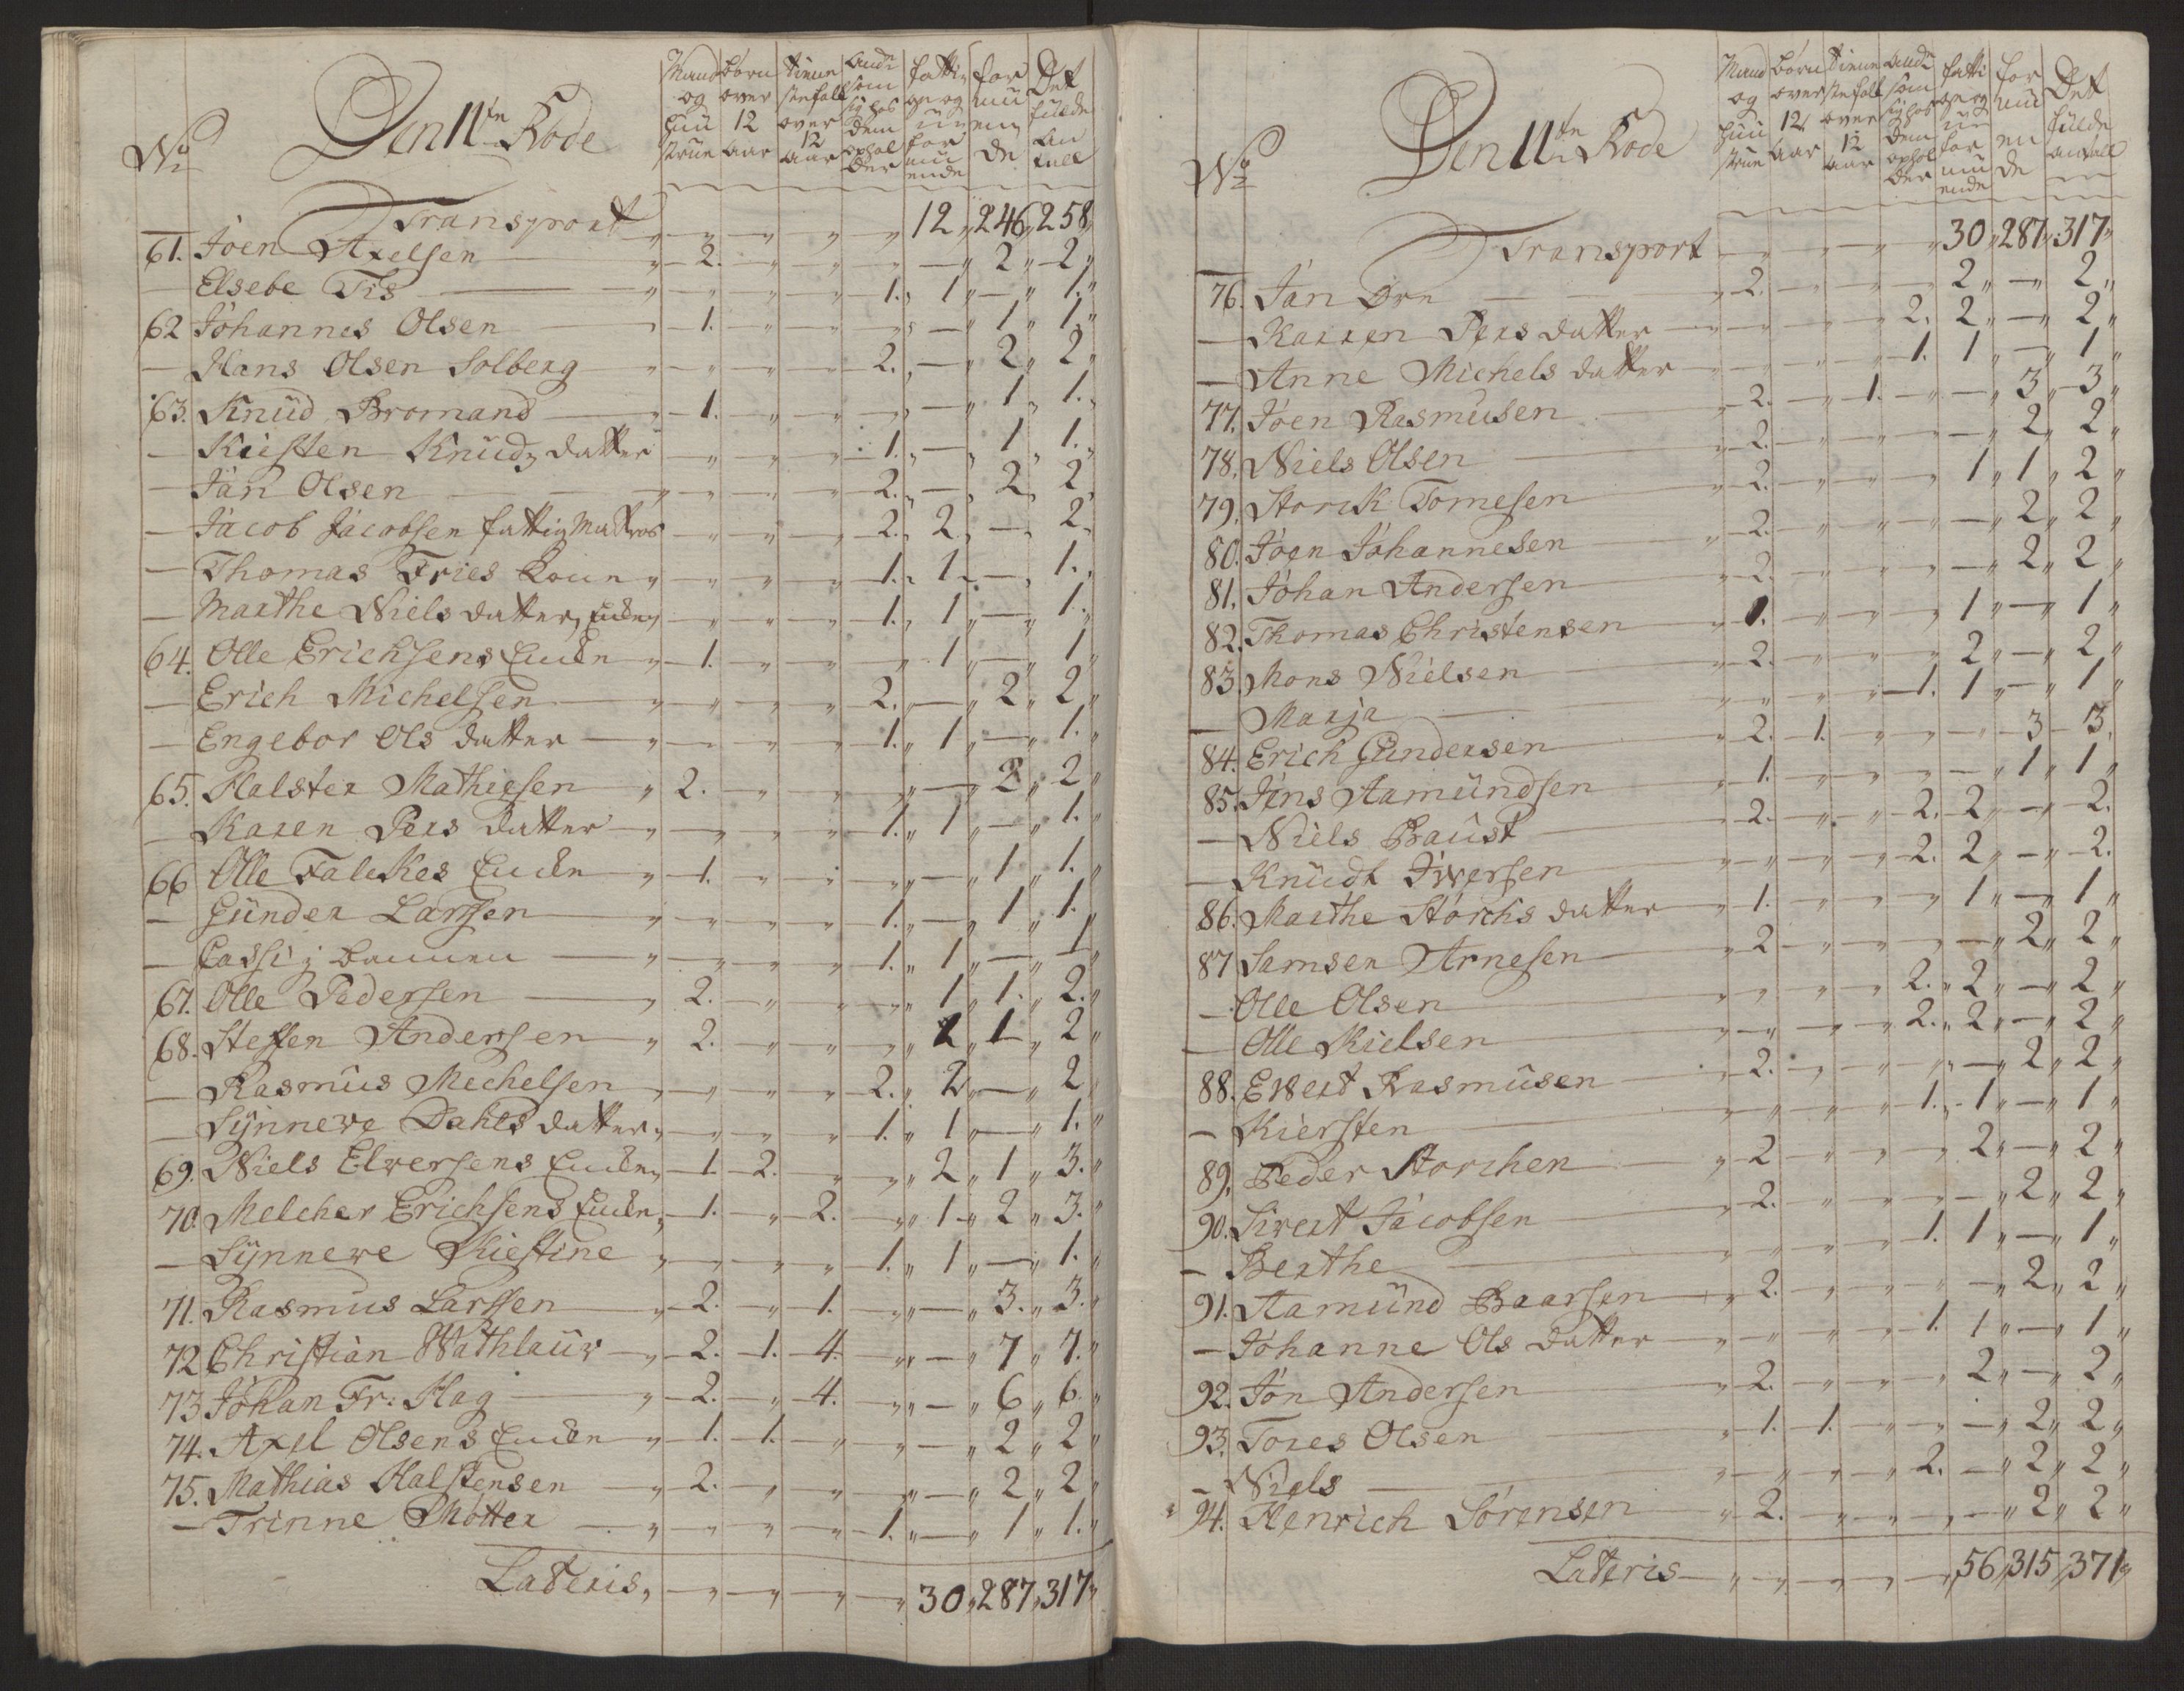 No
Den 11te Rode
Mand og hüüstrue
børn over 12 aar
tienestefolk over 12 aar
andre som sig hos dem opholder
fattige og uformuende
formuende
Det fulde antall
Transport " " " " " 12 " 246 " 258 "
61. Joen Axelsen " 2. " " " — " 2 " 2 "
— Elsebe Fis " " " " 1. " 1 " — " 1. "
62 Johannes Olsen 1. " " " — " 1 " 1. "
— Hans Olsen Solberg " " " " 2. " — " 2 " 2 "
63. Knüd Bromand " 1. " " " — " 1 " 1. "
— Kiesten Knüdz datter " " " 1. " — " 1 " 1. "
— Jan Olsen " " " " 2. " — " 2 " 2
— Jacob Jacobsen fattig Matros " " " 2. " 2 " — " 2 "
— Thomas Fries Koene " " " " 1. " 1 " — " 1. "
— Marthe Niels datter, Encke " " " " 1. " 1 " — " 1. "
64. Olle Erichsens Encke " 1. " " " 1 " — " 1 "
— Erich Michelsen " " " " 2. " — " 2 " 2 "
— Engebor Ols datter " " " " 1. " 1 " — " 1. "
65. Halster Mathiesen " 2. " " " — " 2 " 2 "
— Karen Pers datter " " " " 1. " 1 " — " 1. "
66 Olle Falckes Encke " 1. " " " — " 1 " 1. "
— Günder Larssen " " " " 1. " — " 1 " 1. "
— " " " " 1. " 1 " — " 1 "
67. Olle Pedersen " 2. " " " 1 " 1. " 2. "
68. Steffen Andersen " 2. " " " 1 " 1 " 2 "
— Rasmus Mechelsen " " " " 2. " 2 " — " 2 "
— Synneve Dahls datter " " " " 1. " 1 " — " 1. "
69. Niels Elversens Encke " 1. 2. " " 2 " 1 " 3. "
70. Melcher Erichsens Encke " 1. " 2. " 1 " 2 " 3. "
— Synneve Kiestine " " " " 1. " 1 " — " 1. "
71. Rasmus Larssen " 2. " 1. " — " 3. " 3. "
72 Christian Wathlaür " 2. 1. 4. " — " 7 " 7. "
73 Johan Fr: Hag " 2. " 4. " — " 6 " 6. "
74. Axel Olsens Encke " 1. 1. " " — " 2 " 2 "
75. Mathias Halstensen " 2. " " " — " 2 " 2 "
— Trinne Møtter " " " " 1. " — " 1 " 1. "
Lateris, " " " " " 30 " 287 " 317 "
No
Den 11te Rode
Mand og hüüstrue
børn over 12 aar
tienestefolk over 12 aar
andre som sig hos dem opholder
fattige og uformuende
formuende
Det fulde antall
Transport " " " " " 30 " 287 " 317 "
76. Jan Ørn " 2. " " " 2 " — " 2 "
— Karren Pers datter " " " " 2. 2 " — " 2 "
— Anne Michels datter " " " " 1. 1 " — " 1 "
77. Joen Rasmusen " 2. " 1. " — " 3 " 3 "
78. Niels Olsen " 2. " " " — " 2 " 2 "
79. Storck Tomesen " 2. " " " 1 " 1 " 2 "
80. Joen Johannesen " 2. " " " — " 2 " 2 "
81. Johan Andersen " 2. " " " — " 2 " 2 "
82. Thomas Christensen " 1. " " " 1 " — " 1 "
83. Mons Nielsen " 2. " " " 2 " — " 2 "
— Marja " " " " 1. 1 " — " 1 "
84. Erich Gündersen " 2. 1. " " — " 3 " 3.
85. Jens Aamündsen " 1. " " " — " 1 " 1 "
— Niels Baüst " 2. " " 2. 2 " — " 2.
— Knüdt Iversen " " " " 2. 2 " — " 2.
86. Marthe Storchs datter " 1. " " " 1 " — " 1 "
87 Samsen Arnesen " 2 " " " — " 2 " 2 "
— Olle Olsen " " " " 2. " 2 " — " 2 "
— Olle Kielsen " " " " 2. " 2 " — " 2 "
88. Evert Rasmusen " 2. " " " — " 2 " 2 "
— Kiersten " " " " 1. 1 " — " 1 "
89. Peder Storchen " 2 " " " 2 " — " 2 "
90. Sivert Jacobsen " 2. " " " — " 2 " 2 "
— Berthe " " " " 1. 1 " — " 1 "
91. Aamünd Baarsen " 2. " " " — " 2 " 2 "
— Johanne Ols datter " " " " 1. 1 " — " 1 "
92. Jon Andersen " 2. " " " 2 " — " 2 "
93. Tores Olsen " 1. 1. " " — " 2 " 2 "
— Niels " " " " 2. — " 2 " 2 "
94. Henrich Sørensen " 2. " " " — " 2 " 2 "
Lateris " " " " " 56 " 315 " 371 "